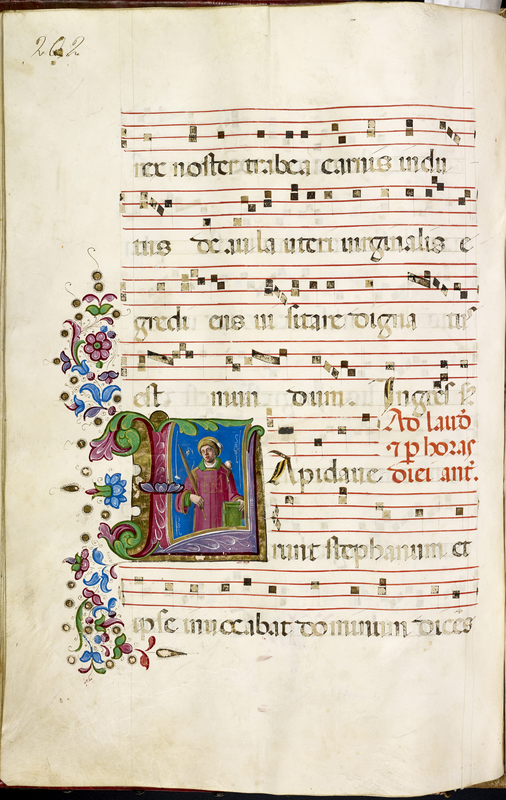 262
rex noster trabea carnis indu
tus de aula uteri virginalis e
gredi ens vi sitare digna tus
est mun dum Ingres
Ad laud
⁊ p horas
diei ant.
Lapidave
runt stephanum et
ipse invocabat dominum dices